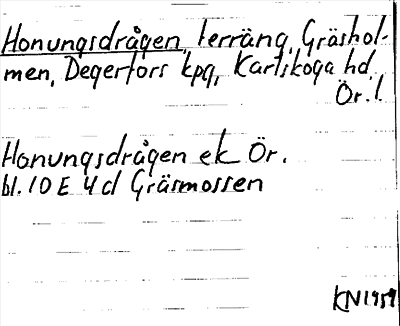 Honungsdrågen, terräng, Gräshol-
men, Degerfors kpg, Karlskoga hd.
Ör. l.
Honungsdrågen ek Ör.
bl. 10 E 4 d Gräsmossen
KN 1959